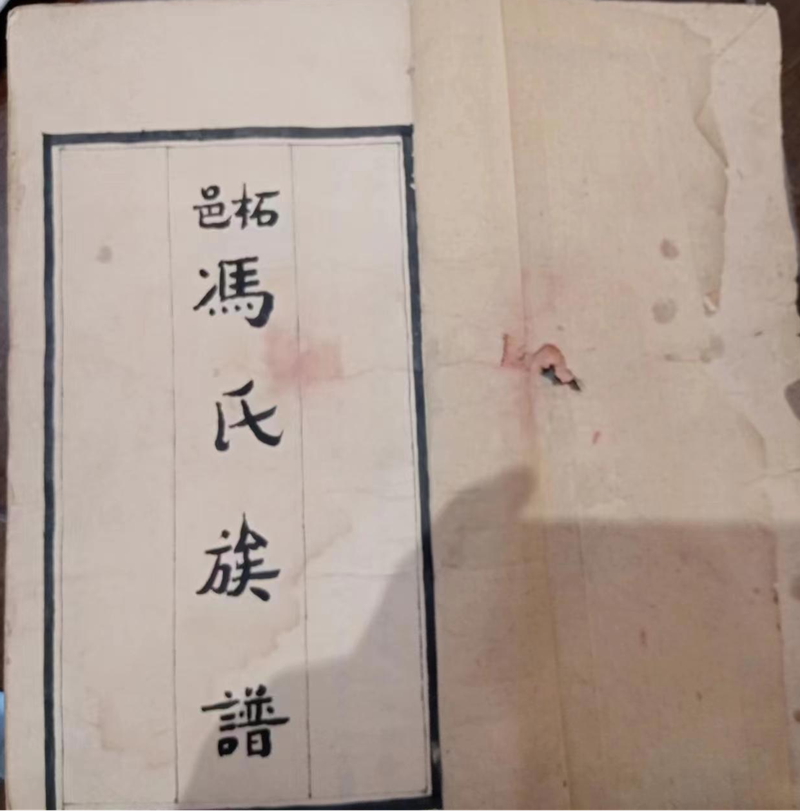 柘邑
馮氏族譜